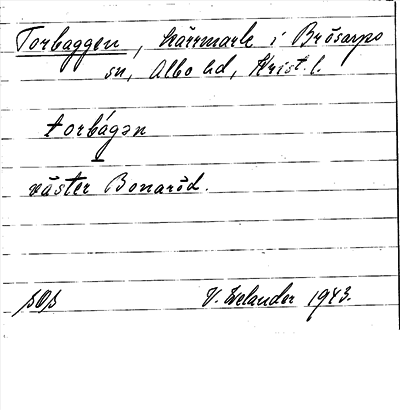 Torbaggen, kärrmark i Brösarps
sn, Albo hd, Krist. l.
torbágən
väster Bonaröd.
V. Welander 1943.